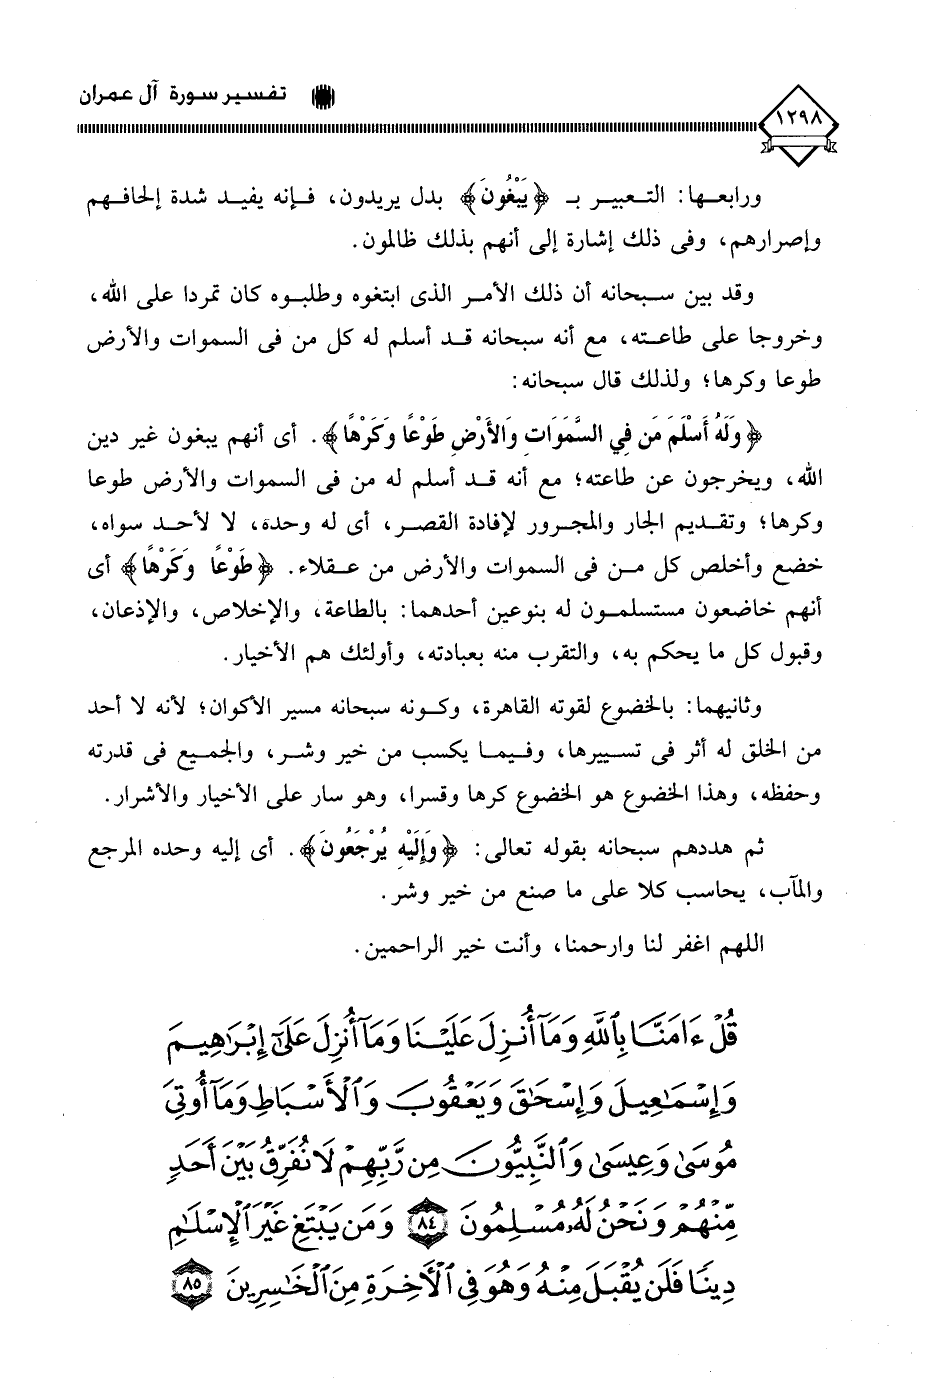 ١٢٩٨
تفسير سورة آل عمران
ورابعها: التعبير بـ ﴿يَبْغُونَ﴾ بدل يريدون، فإنه يفيد شدة إلحافهم
وإصرارهم، وفى ذلك إشارة إلى أنهم بذلك ظالمون.
وقد بين سبحانه أن ذلك الأمر الذى ابتغوه وطلبوه كان تمردا على الله،
وخروجا على طاعته، مع أنه سبحانه قد أسلم له كل من فى السموات والأرض
طوعا وكرها؛ ولذلك قال سبحانه:
﴿وَلَهُ أَسْلَمَ مَن فِي السَّمَوَاتِ وَالأَرْضِ طَوْعًا وَكَرْهًا﴾. أى أنهم يبغون غير دين
الله، ويخرجون عن طاعته؛ مع أنه قد أسلم له من فى السموات والأرض طوعا
وكرها؛ وتقديم الجار والمجرور لإفادة القصر، أى له وحده، لا لأحد سواه،
خضع وأخلص كل من فى السموات والأرض من عقلاء. ﴿طَوْعًا وَكَرْهًا﴾ أى
أنهم خاضعون مستسلمون له بنوعين أحدهما: بالطاعة، والإخلاص، والإذعان،
وقبول كل ما يحكم به، والتقرب منه بعبادته، وأولئك هم الأخيار.
وثانيهما: بالخضوع لقوته القاهرة، وكونه سبحانه مسير الأكوان؛ لأنه لا أحد
من الخلق له أثر فى تسييرها، وفيما يكسب من خير وشر، والجميع فى قدرته
وحفظه، وهذا الخضوع هو الخضوع كرها وقسرا، وهو سار على الأخيار والأشرار.
ثم هددهم سبحانه بقوله تعالى: ﴿وَإِلَيْهِ يُرْجَعُونَ﴾. أى إليه وحده المرجع
والمآب، يحاسب كلا على ما صنع من خير وشر.
اللهم اغفر لنا وارحمنا، وأنت خير الراحمين.
قُلْ ءَامَنَّا بِٱللَّهِ وَمَآ أُنزِلَ عَلَيْنَا وَمَآ أُنزِلَ عَلَىٰٓ إِبْرَٰهِيمَ
وَإِسْمَٰعِيلَ وَإِسْحَٰقَ وَيَعْقُوبَ وَٱلْأَسْبَاطِ وَمَآ أُوتِىَ
مُوسَىٰ وَعِيسَىٰ وَٱلنَّبِيُّونَ مِن رَّبِّهِمْ لَا نُفَرِّقُ بَيْنَ أَحَدٍ
مِّنْهُمْ وَنَحْنُ لَهُۥ مُسْلِمُونَ ٨٤ وَمَن يَبْتَغِ غَيْرَ ٱلْإِسْلَٰمِ
دِينًا فَلَن يُقْبَلَ مِنْهُ وَهُوَ فِى ٱلْأَخِرَةِ مِنَ ٱلْخَٰسِرِينَ ٨٥